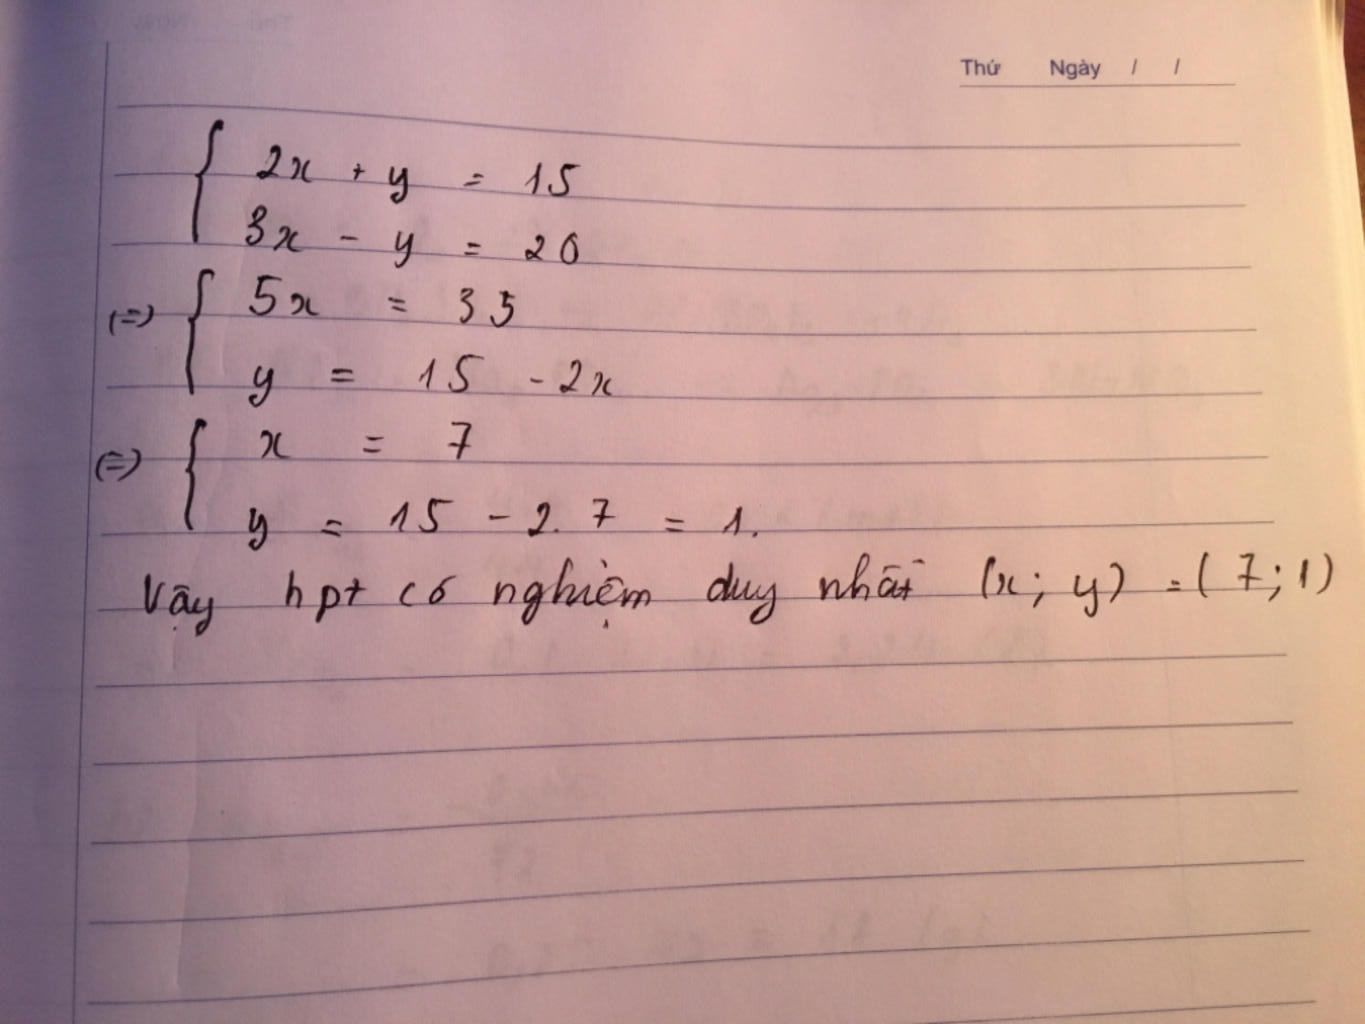 Thứ Ngày / /
{ 2x + y = 15
3x - y = 20
(=) { 5x = 35
y = 15 - 2x
(=) { x = 7
y = 15 - 2. 7 = 1.
Vậy hpt có nghiệm duy nhất (x; y) = (7; 1)